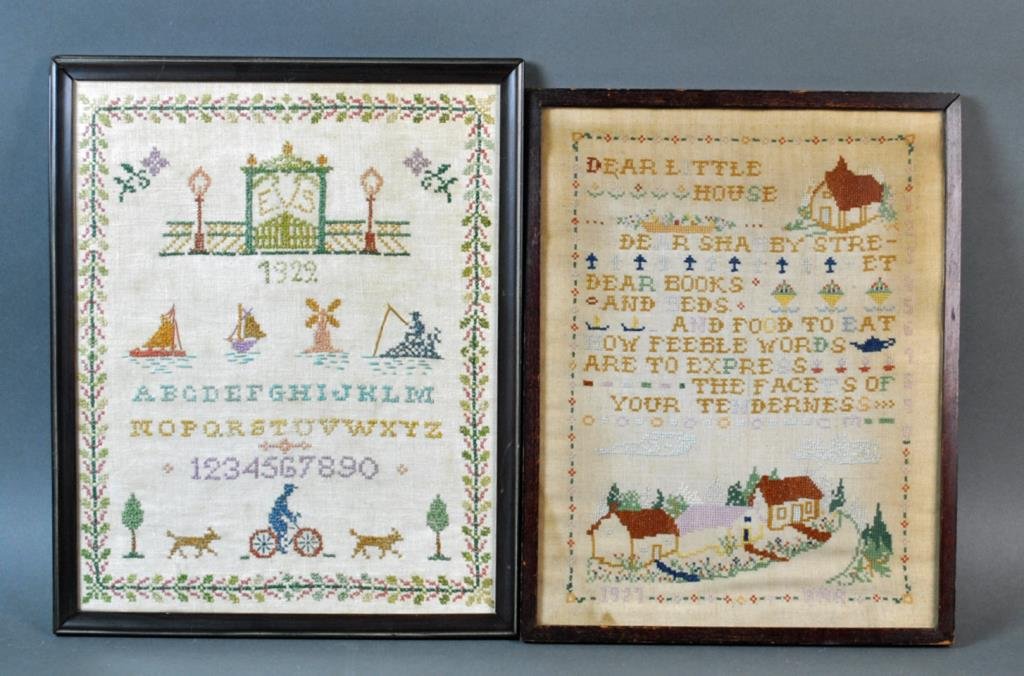 1929
ABCDEFGHIJKLM
NOPQRSTUVWXYZ
1234567890
DEAR LITTLE
HOUSE
DEAR SHABBY STRE-
ET
DEAR BOOKS
AND BEDS
AND FOOD TO EAT
HOW FEEBLE WORDS
ARE TO EXPRESS
THE FACETS OF
YOUR TENDERNESS